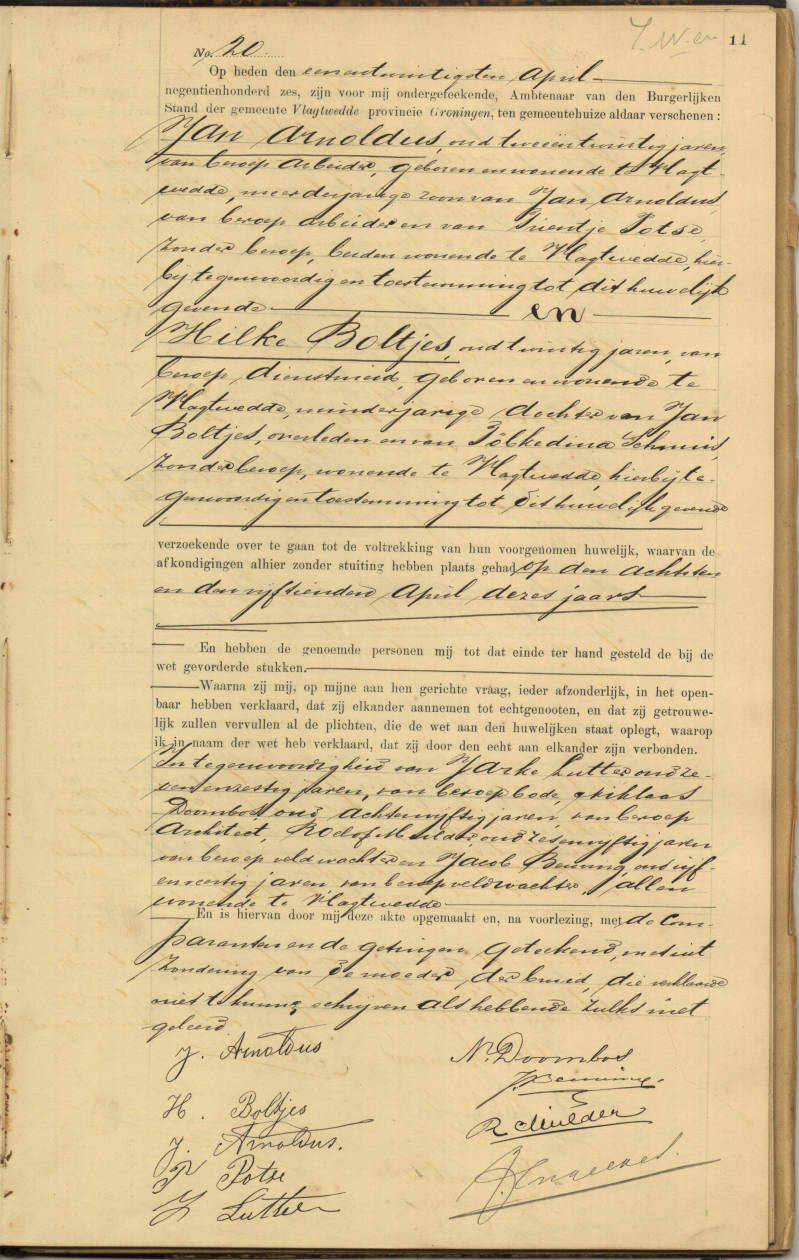 11
No. 20.
Op heden den eenentwintigsten April
negentienhonderd zes, zijn voor mij ondergeteekende, Ambtenaar van den Burgerlijken
Stand der gemeente Vlagtwedde provincie Groningen, ten gemeentehuize aldaar verschenen:
Jan Arnoldus, oud tweeëntwintig jaren,
van beroep arbeider, geboren en wonende te Vlagt-
wedde, meerderjarige zoon van Jan Arnoldus,
van beroep arbeider en van Trientje Potse,
zonder beroep, beiden wonende te Vlagtwedde, hier-
bij tegenwoordig en toestemming tot dit huwelijk
gevende en
Hilke Boltjes, oud twintig jaren, van
beroep dienstmeid, geboren en wonende te
Vlagtwedde, minderjarige dochter van Jan
Boltjes, overleden en van Tobkedina Schuur,
zonder beroep, wonende te Vlagtwedde, hierbij te-
genwoordig en toestemming tot dit huwelijk gevende
verzoekende over te gaan tot de voltrekking van hun voorgenomen huwelijk, waarvan de
afkondigingen alhier zonder stuiting hebben plaats gehad op den achtsten
en den vijftienden April dezes jaars
En hebben de genoemde personen mij tot dat einde ter hand gesteld de bij de
wet gevorderde stukken.
Waarna zij mij, op mijne aan hen gerichte vraag, ieder afzonderlijk, in het open-
baar hebben verklaard, dat zij elkander aannemen tot echtgenooten, en dat zij getrouwe-
lijk zullen vervullen al de plichten, die de wet aan den huwelijken staat oplegt, waarop
ik in naam der wet heb verklaard, dat zij door den echt aan elkander zijn verbonden.
In tegenwoordigheid van Jarke Lutter oud ze-
venenzestig jaren, van beroep bode, Niklaas
Doornbos oud achtenvijftig jaren, van beroep
Architect, Roelof Mulder, oud zesenvijftig jaren
van beroep veldwachter en Jacob Benning, oud vijf-
enveertig jaren, van beroep veldwachter, allen
wonende te Vlagtwedde
En is hiervan door mij deze akte opgemaakt en, na voorlezing, met de Com-
paranten en de getuigen geteekend, met uit
zondering van de moeder der bruid, die verklaarde
niet te kunnen schrijven als hebbende zulks niet
geleerd.
J. Arnoldus
N. Doornbos
J. Benning.
H. Boltjes
R Mulder
J. Arnoldus.
T Potse
J Lutter